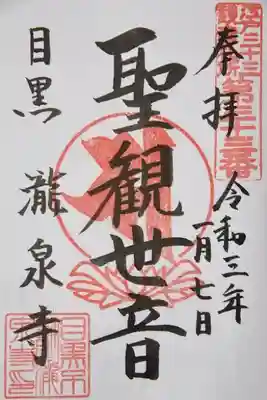 奉拝
令和三年
一月七日
聖観世音
目黒 瀧泉寺